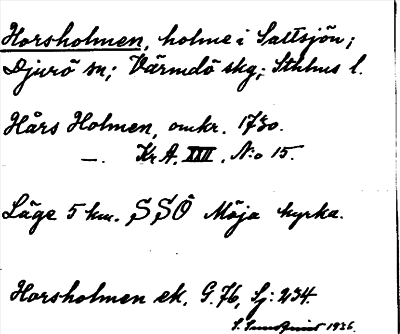 Horsholmen, holme i Saltsjön;
Djurö sn; Värmdö skg; Sthlms l.
Hårs Holmen, omkr. 1730.
—. Kr.A. XXII, N:o 15.
Läge 5 km. SSÖ Möja kyrka.
Horsholmen ek. G.76, Lj: 234
S. 1926.